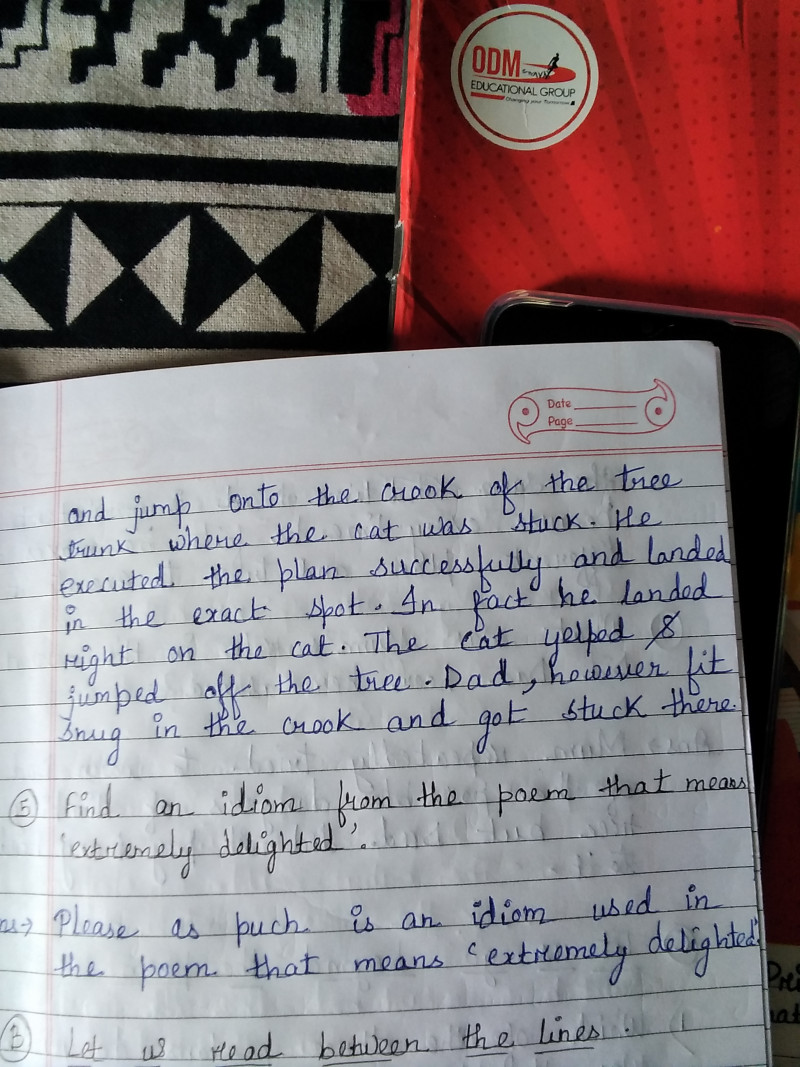 ODM
EDUCATIONAL GROUP
Changing your Tomorrow
Date
Page
and jump onto the crook of the tree
trunk where the cat was stuck. He
executed the plan successfully and landed
in the exact spot. In fact he landed
right on the cat. The cat yelped &
jumped off the tree. Dad, however fit
snug in the crook and got stuck there.
5 Find an idiom from the poem that means
'extremely delighted'.
Please as puch is an idiom used in
the poem that means 'extremely delighted'
Let us read between the lines.